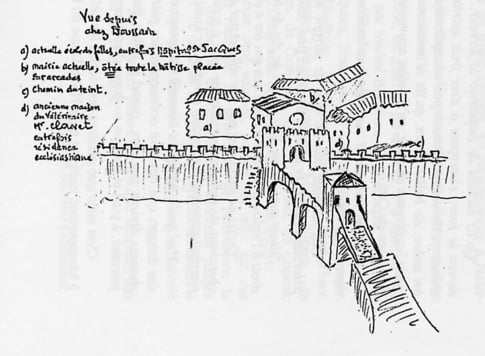 Vue depuis
chez Doussain
a) actuelle école de filles, autrefois Hôpital St Jacques
b) mairie actuelle, ôtée toute la bâtisse placée
sur arcades
c) Chemin du teint.
d) ancienne maison
du Vétérinaire
Mr. Clavet
autrefois
résidence
ecclésiastique
a)
b)